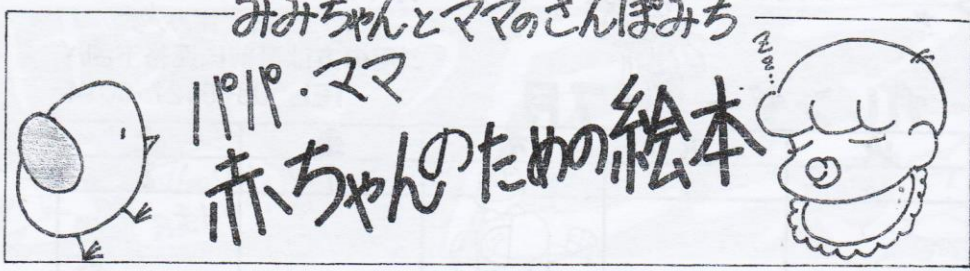 みみちゃんとママのさんぽみち
パパ・ママ
赤ちゃんのための絵本
zzz...